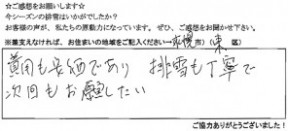 ☆ご感想をお願いします☆
今シーズンの排雪はいかがでしたか?
お客様の声が、私たちの原動力になっています。ぜひ、ご感想をお聞かせ下さい。
※差支えなければ、お住まいの地域をご記入ください→札幌市(東 区)
費用も安価であり 排雪も丁寧で
次回もお願したい
ご協力ありがとうございました!